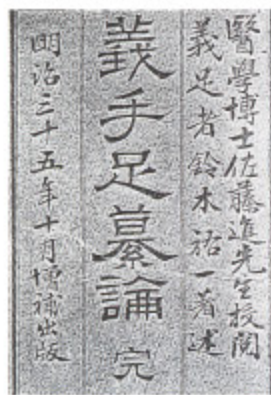 醫學博士佐藤進先生校閲
義足者鈴木祐一著述
義手足纂論 完
明治三十五年十月増補出版